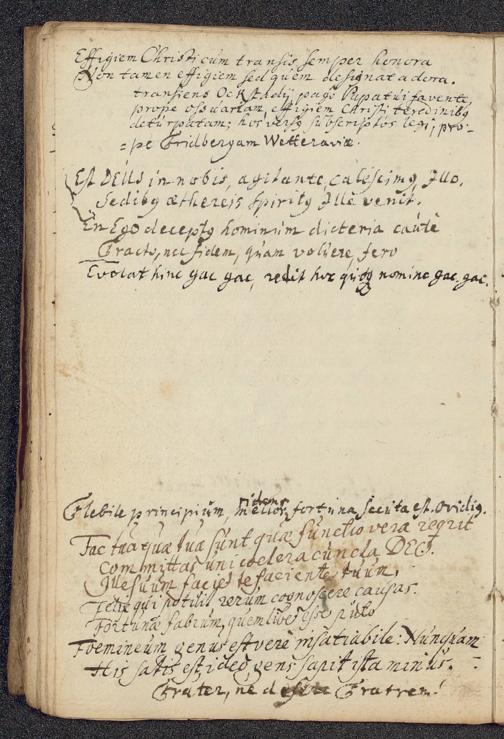 Effigiem Christi cum transis semper honora
Non tamen effigiem sed quem designat adora.
transiens Ockstadij pago Papatui favente,
prope ossuariam, effigiem Christi teredinibq
deturpatam; hos versq subscriptos legi, pro-
=pe Fridbergam Wetteraviæ.
Est DEUS in nobis, agitante, calescimq, Illo,
Sedibq æthereis spiritq Ille venit.
En Ego deceptq hominum dicteria cautè
Tracto, nec fidem, quam voluere, fero
Evolat hinc gac gac, redit huc quoq nomine gac, gac.
Flebile principium, melior fortuna secuta est. Ovidiq.
ridens
Fac tua quæ tua sunt quæ functio vera reqrit
Committas uni cœlera cuncta DEO.
Ille suum faciet te faciente tuum
Felix qui potuit rerum cognoscere causas.
Fortunæ fabrum, quemlibet esse puto
Foemineum genus est verè insatiabile: Nunquam
His satis est, ideò gens sapit ista minus.
Frater, ne desere Fratrem!